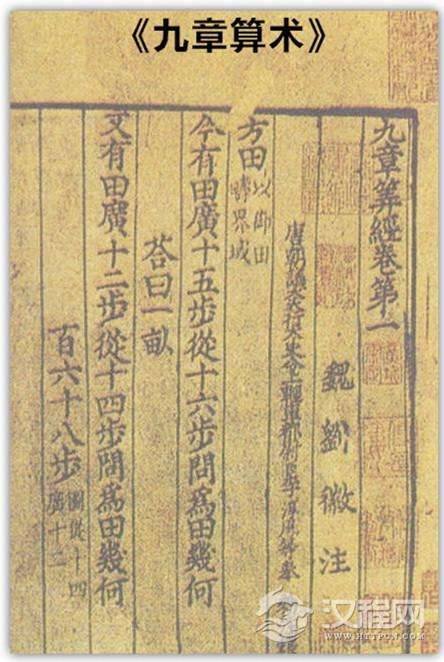 《九章算术》
九章筭經卷第一
魏 劉 徽 注
唐朝議大夫行太史令上輕車都尉臣李淳風等奉
方田以御田疇界域
今有田廣十五步從十六步問為田幾何
荅曰一畝
又有田廣十二步從十四步問為田幾何
百六十八步圖從十四廣十二
汉程网
HTTPCN.COM